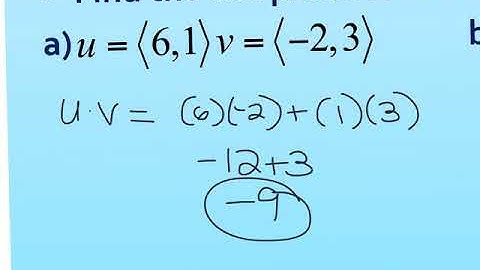 a) u = ⟨6,1⟩ v = ⟨−2,3⟩
u · v = (6)(-2) + (1)(3)
-12+3
-9